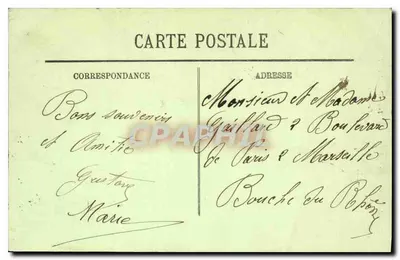 CARTE POSTALE
CORRESPONDANCE
ADRESSE
Bons souvenirs
et Amitié
Gustave
Marie
Monsieur et Madame
Gaillard 2 Boulevard
de Paris 2 Marseille
Bouche du Rhône
CPARAMA